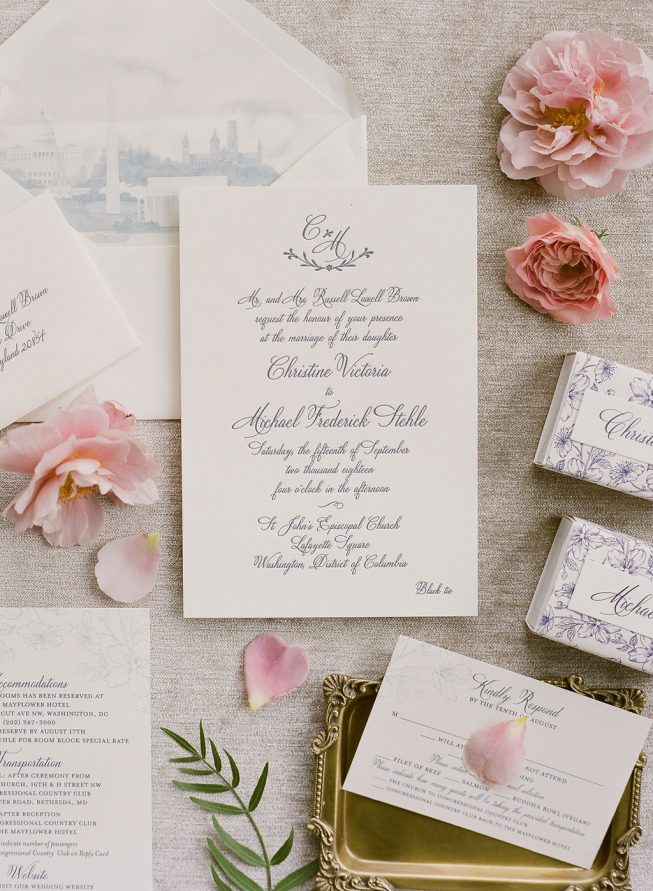 C & M
Mr. and Mrs. Russell Lowell Brown
request the honour of your presence
at the marriage of their daughter
Christine Victoria
to
Michael Frederick Stehle
Saturday, the fifteenth of September
two thousand eighteen
four o'clock in the afternoon
St. John's Episcopal Church
Lafayette Square
Washington, District of Columbia
Black tie
owell Brown
Drive
yland 20854
Christ
Michae
ccommodations
ROOMS HAS BEEN RESERVED AT
MAYFLOWER HOTEL
CUT AVE NW, WASHINGTON, DC
(202) 347-3000
EHLE FOR ROOM BLOCK SPECIAL RATE
ransportation
AFTER CEREMONY FROM
CHURCH, 16TH & H STREET NW
GRESSIONAL COUNTRY CLUB
VER ROAD, BETHESDA, MD
AFTER RECEPTION
NGRESSIONAL COUNTRY CLUB TO
THE MAYFLOWER HOTEL
indicate number of passengers
ngressional Country Club on Reply Card
Website
VISIT OUR WEDDING WEBSITE
Kindly Respond
BY THE TENTH OF AUGUST
M
WILL AT NOT ATTEND
Please initial selection
FILET OF BEEF SALMON BUDDHA BOWL (VEGAN)
Please indicate how many guests will be taking the provided transportation
THE CHURCH TO CONGRESSIONAL COUNTRY CLUB
CONGRESSIONAL COUNTRY CLUB BACK TO THE MAYFLOWER HOTEL